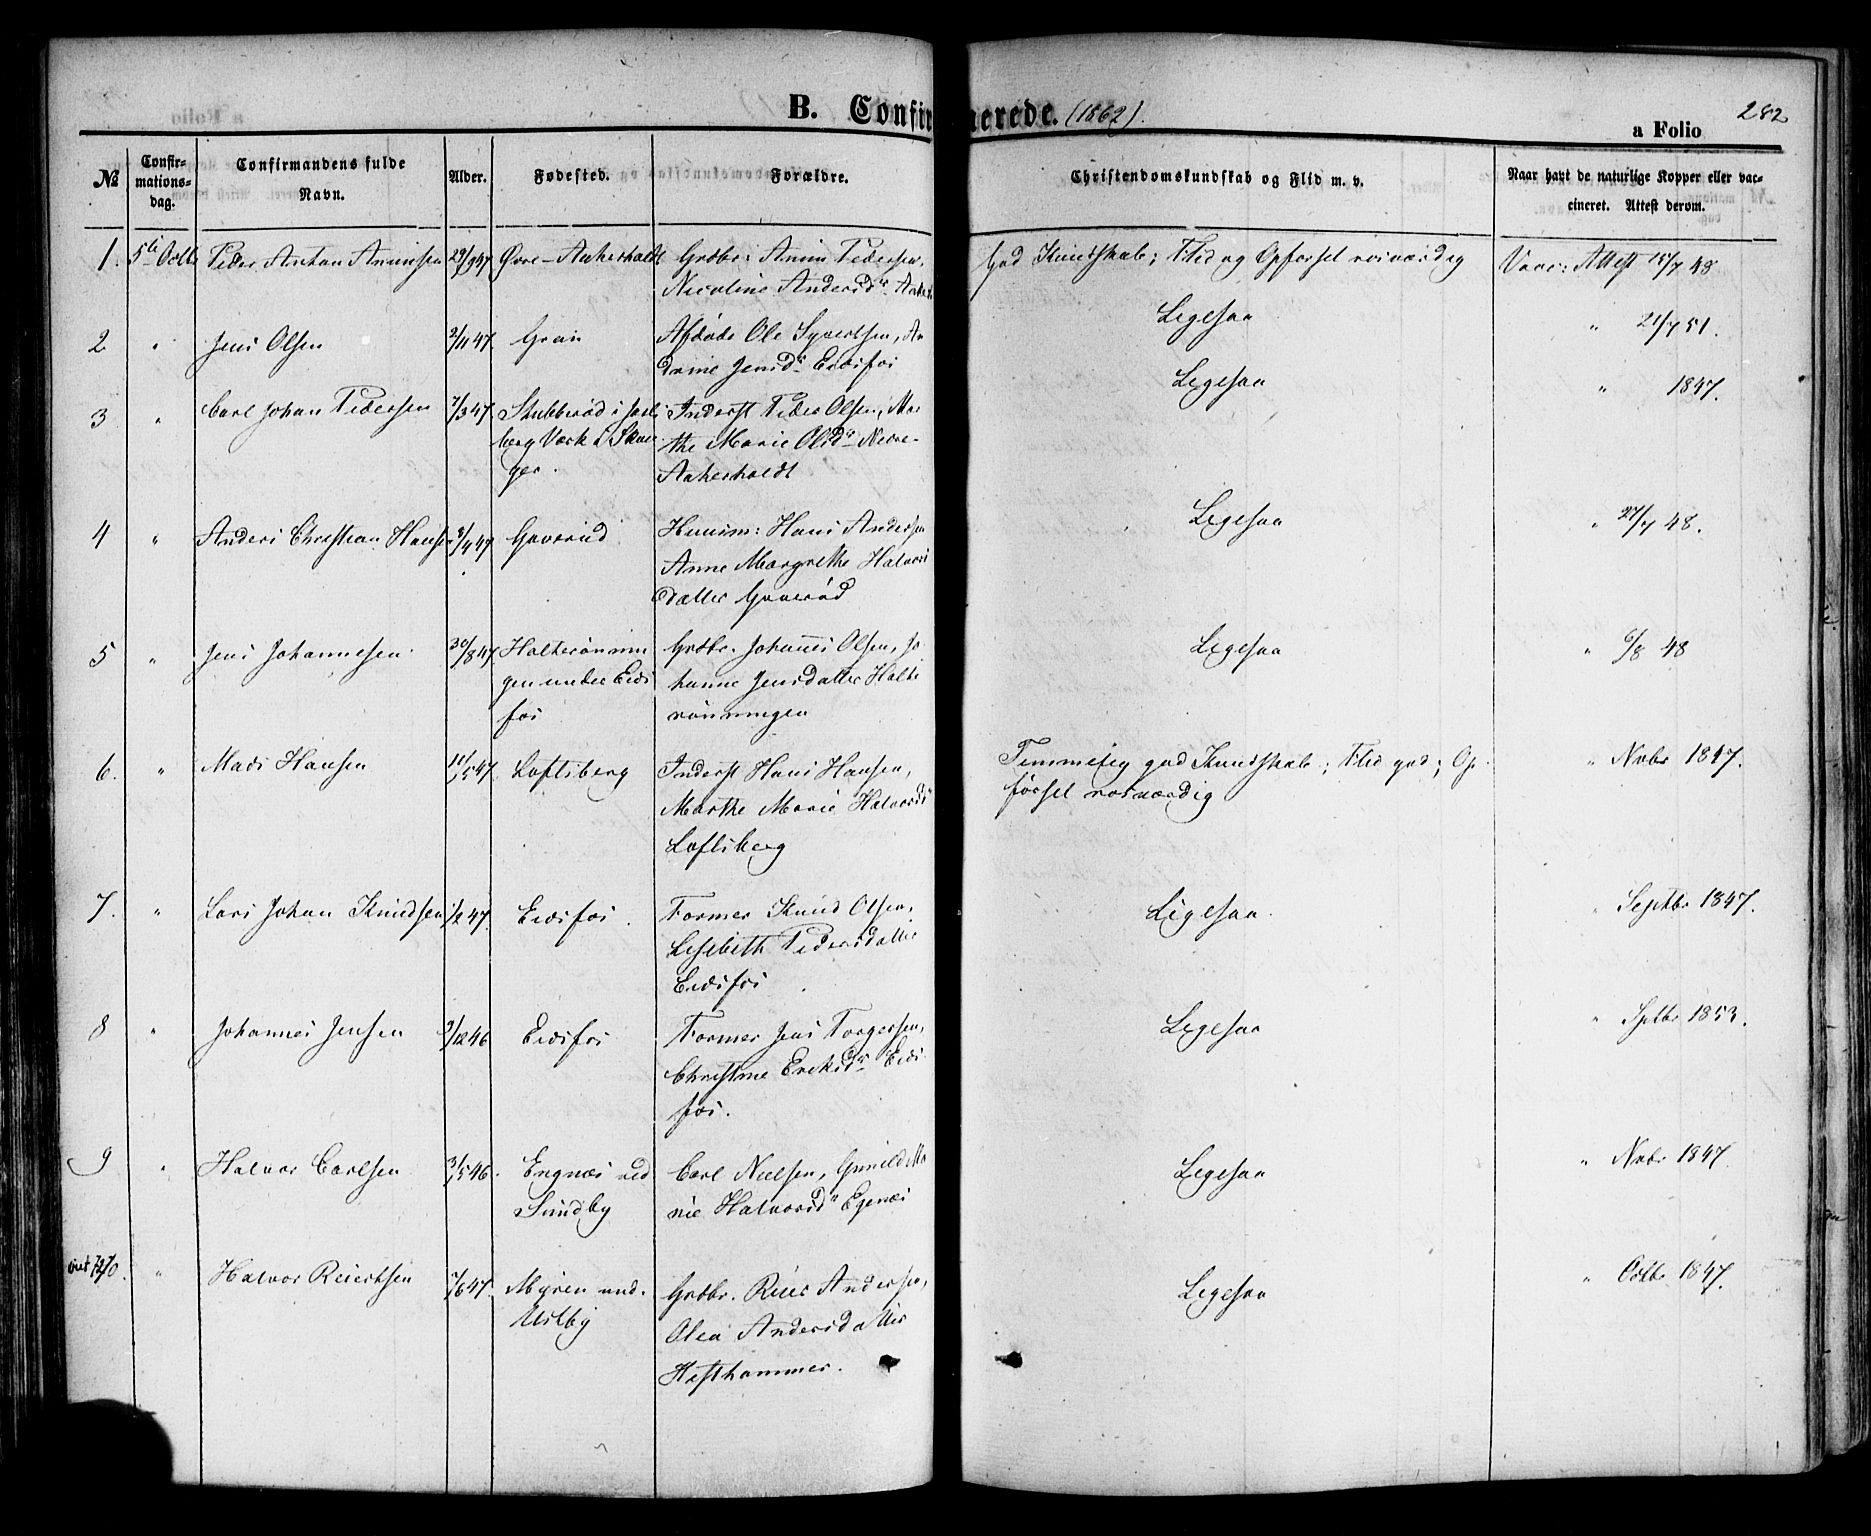 B. Confirmerede. (1862).
a Folio 282
№
Confirmationsdag.
Confirmandens fulde Navn.
Alder.
Fødested.
Forældre.
Christendomskundskab og Flid m. v.
Naar havt de naturlige Kopper eller vaccineret. Attest derom.
1. 5te Octb. Peder Anton Arnunsen 29/9 47 Øvre-Aakerholdt Grdbr: Pedersen,
Nicoline Andersdr.
God Kundskab; Flid og Opførsel rosværdig Vacc: Attest 15/7 48
2 " Jens Olsen 2/11 47 Gran Afdøde Ole Syvertsen, An
drine Jensdr. Eidsfos
Ligesaa " 21/7 51.
3 " Carl Johan Pedersen 7/3 47 Stubberød i Jarls
berg Værk i Skou
ger.
Inderst Peder Olsen, Mar
the Marie Olsdr. Nedre-
Aakerholdt
Ligesaa " 1847.
4 " Anders Christian Hansen 3/4 47 Gaverud Huusm: Hans Andersen
Anne Margrethe Halvors
datter Gaverød
Ligesaa " 27/7 48.
5 " Jens Johannesen 30/8 47 Holterønnin
gen under Eids
fos
Grdbr. Johannes Olsen, Jo
hanne Jensdatter Holte
rønningen
Ligesaa " 6/8 48
6. " Mads Hansen 11/5 47. Loftsberg Inderst Hans Hansen,
Marthe Marie Halvorsdr.
Loftsberg
Temmelig god Kundskab; Flid god; Op
førsel rosværdig
" Novbr 1847.
7. " Lars Johan Knudsen 1/2 47. Eidsfos. Former Knud Olsen,
Lisebeth Pedersdatter
Eidsfos
Ligesaa. " Septbr 1847.
8 " Johannes Jensen 9/12 46 Eidsfos Former Jens Torgersen,
Christine Eriksdr. Eids
fos.
Ligesaa " Sptbr 1853.
9 " Halvor Carlsen 3/5 46. Engnæs ved
Sundby
Carl Nielsen, Gunild Ma
rie Halvorsdr.
Ligesaa " Novbr 1847.
10. " Halvor Reiertsen 7/6 47. Myren und.
Grdbr. Reier Andersen,
Olea Andersdatter
Hesthammer.
Ligesaa " Octbr 1847.